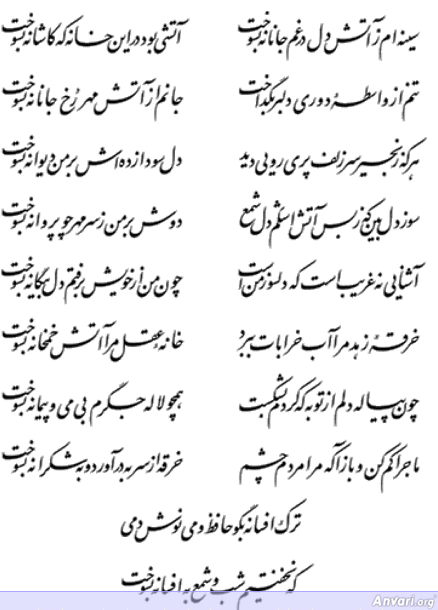 سینه ام ز آتش دل در غم جانانه بسوخت آتشی بود در این خانه که کاشانه بسوخت
تنم از واسطهٔ دوری دلبر بگداخت جانم از آتش مهر رخ جانانه بسوخت
هر که زنجیر سر زلف پری رویی دید دل سودازده اش بر من دیوانه بسوخت
سوز دل بین که ز بس آتش اشکم دل شمع دوش بر من ز سر مهر چو پروانه بسوخت
آشنایی نه غریب است که دلسوز من است چون من از خویش برفتم دل بیگانه بسوخت
خرقهٔ زهد مرا آب خرابات ببرد خانهٔ عقل مرا آتش خمخانه بسوخت
چون پیاله دلم از توبه که کردم بشکست همچو لاله جگرم بی می و پیمانه بسوخت
ماجرا کم کن و بازآ که مرا مردم چشم خرقه از سر به در آورد و به شکرانه بسوخت
ترک افسانه بگو حافظ و می نوش دمی
که نخفتیم شب و شمع به افسانه بسوخت
Anvari.org